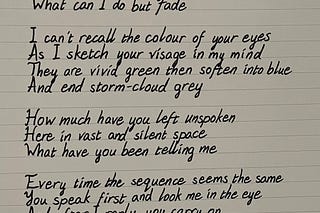 What can I do but fade
I can't recall the colour of your eyes
As I sketch your visage in my mind
They are vivid green then soften into blue
And end storm-cloud grey
How much have you left unspoken
Here in vast and silent space
What have you been telling me
Every time the sequence seems the same
You speak first and look me in the eye
I reply you carry on